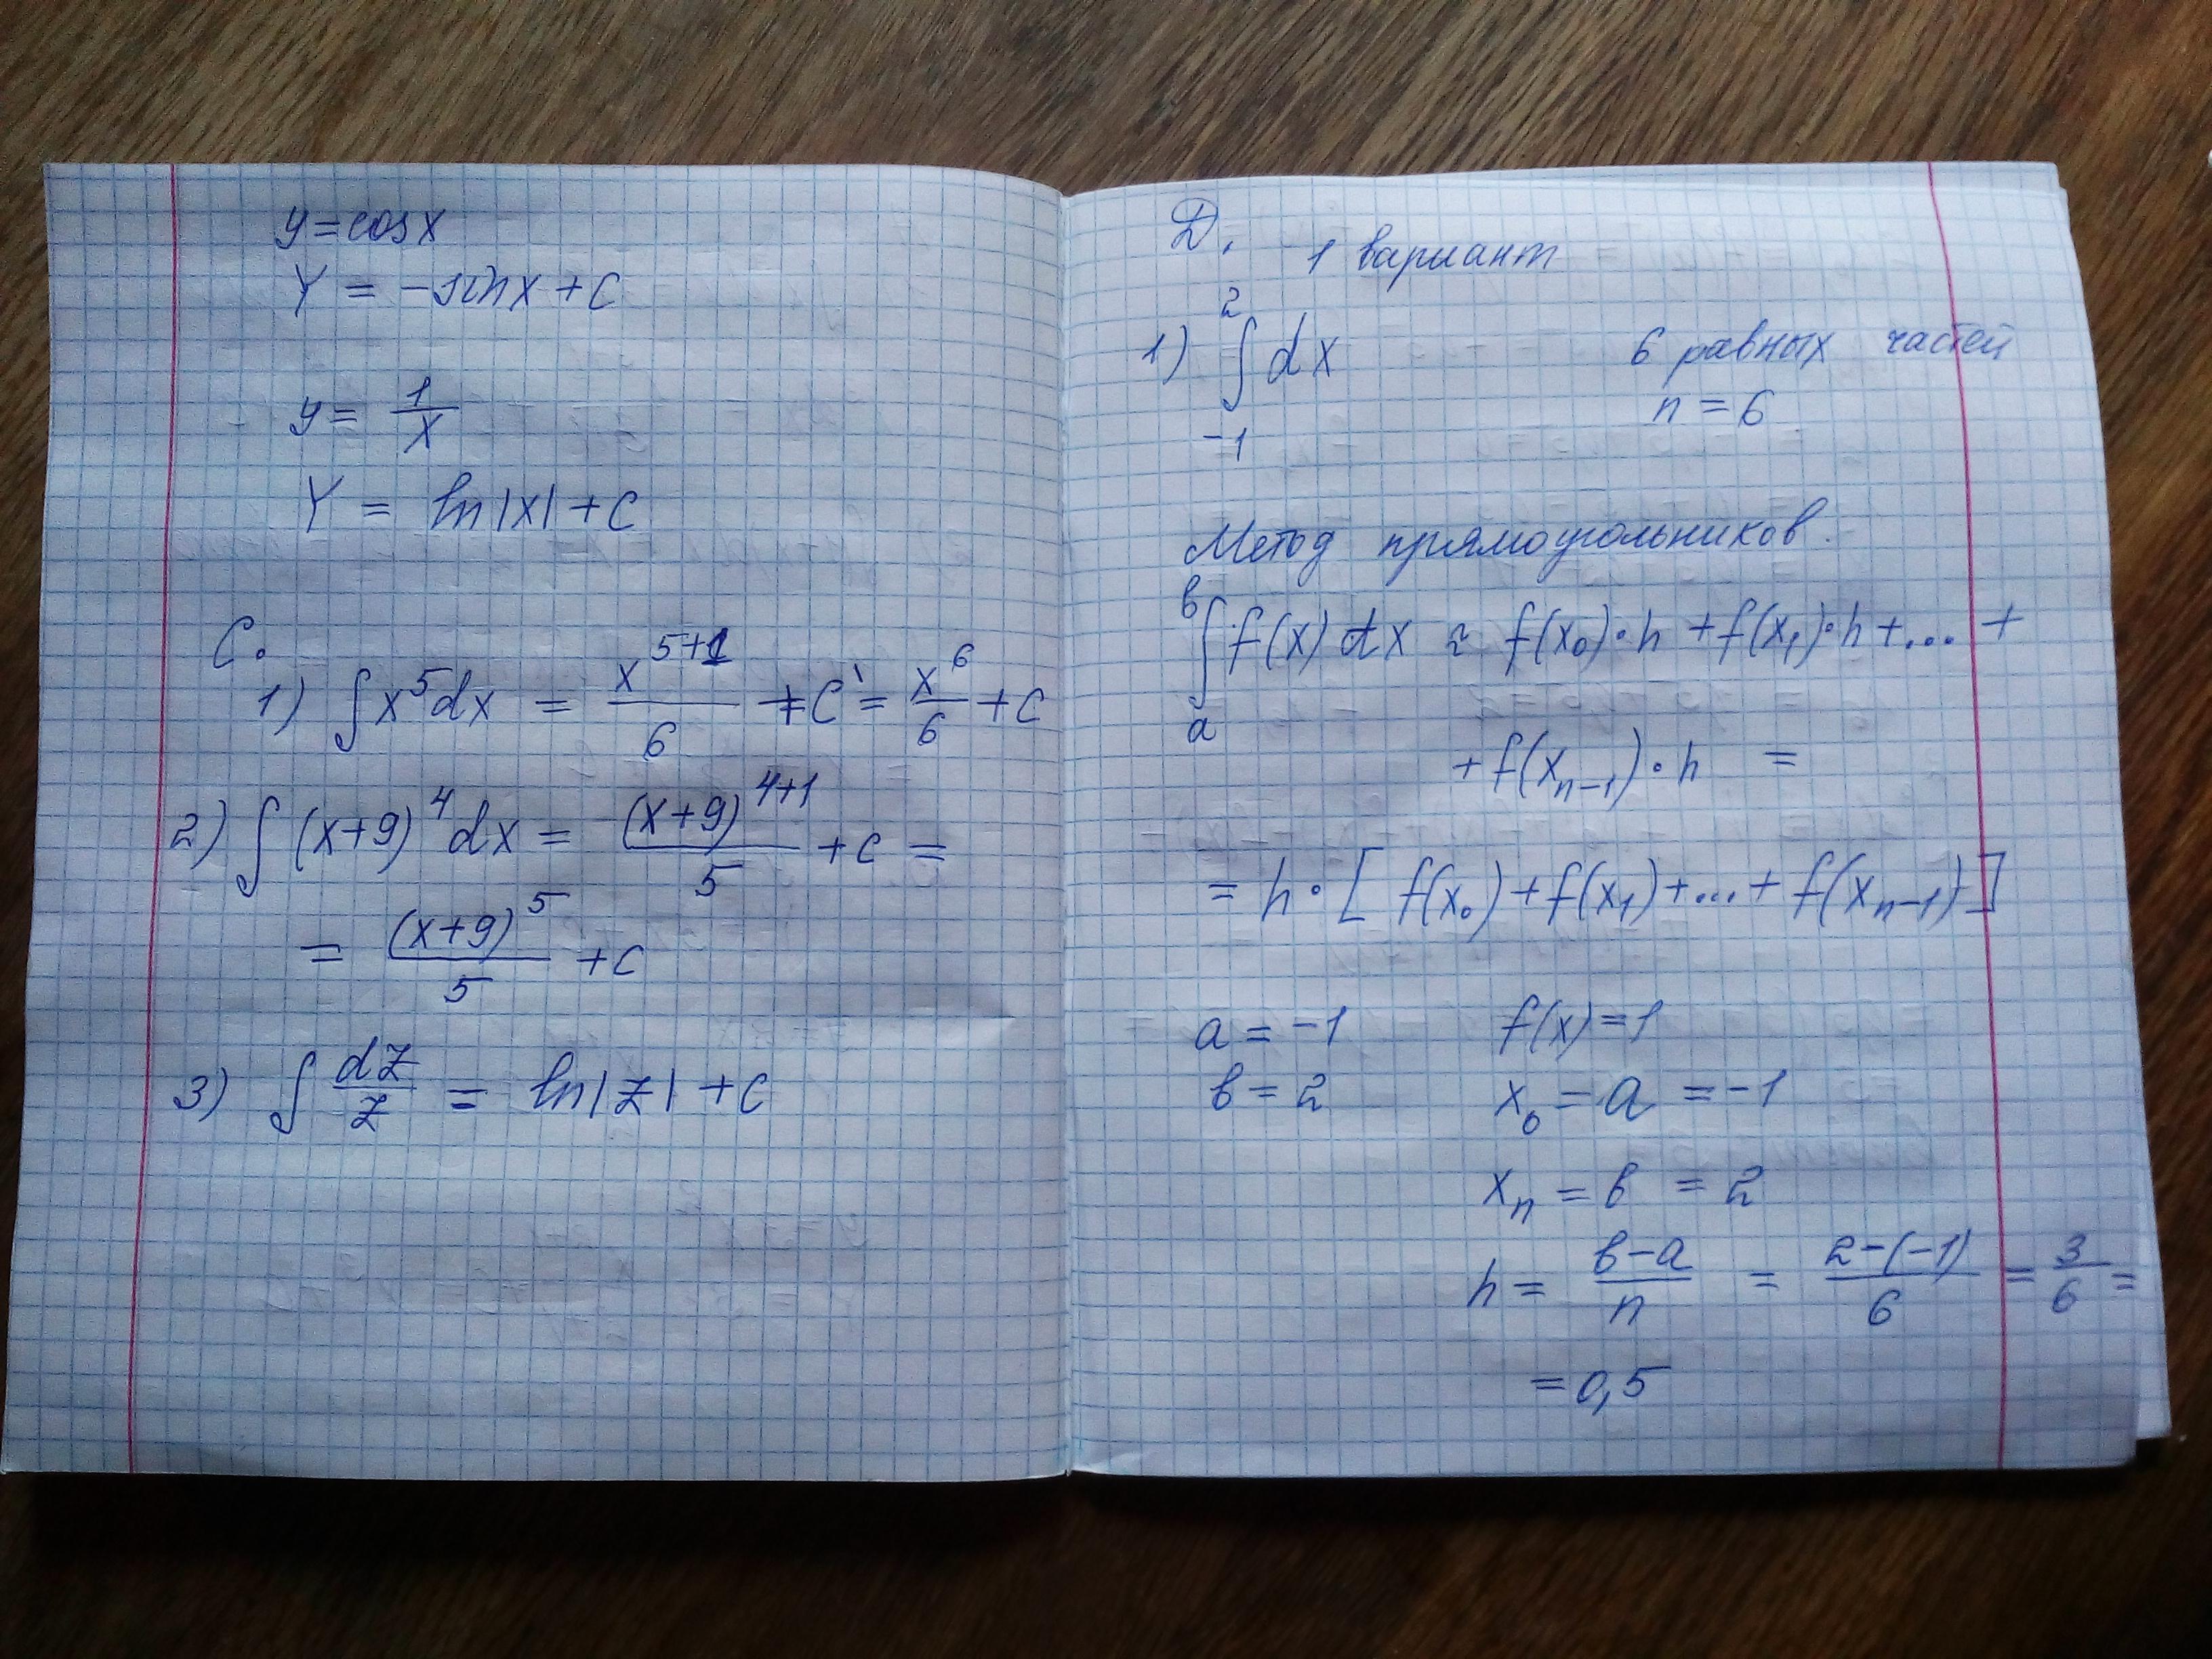 y = cos x
Y = -sin x + C
y = 1/x
Y = ln|x| + C
C.
1) ∫x⁵dx = x⁵⁺¹/6 + C = x⁶/6 + C
2) ∫(x+9)⁴dx = (x+9)⁴⁺¹/5 + C =
= (x+9)⁵/5 + C
3) ∫dz/z = ln|z| + C
Д. 1 вариант
1) ∫₋₁² dx 6 равных частей
n = 6
Метод прямоугольников.
∫ₐᵇ f(x)dx ≈ f(x₀)·h + f(x₁)·h + ... +
+ f(xₙ₋₁)·h =
= h·[f(x₀) + f(x₁) + ... + f(xₙ₋₁)]
a = -1 f(x) = 1
b = 2 x₀ = a = -1
xₙ = b = 2
h = (b-a)/n = (2-(-1))/6 = 3/6 =
= 0,5